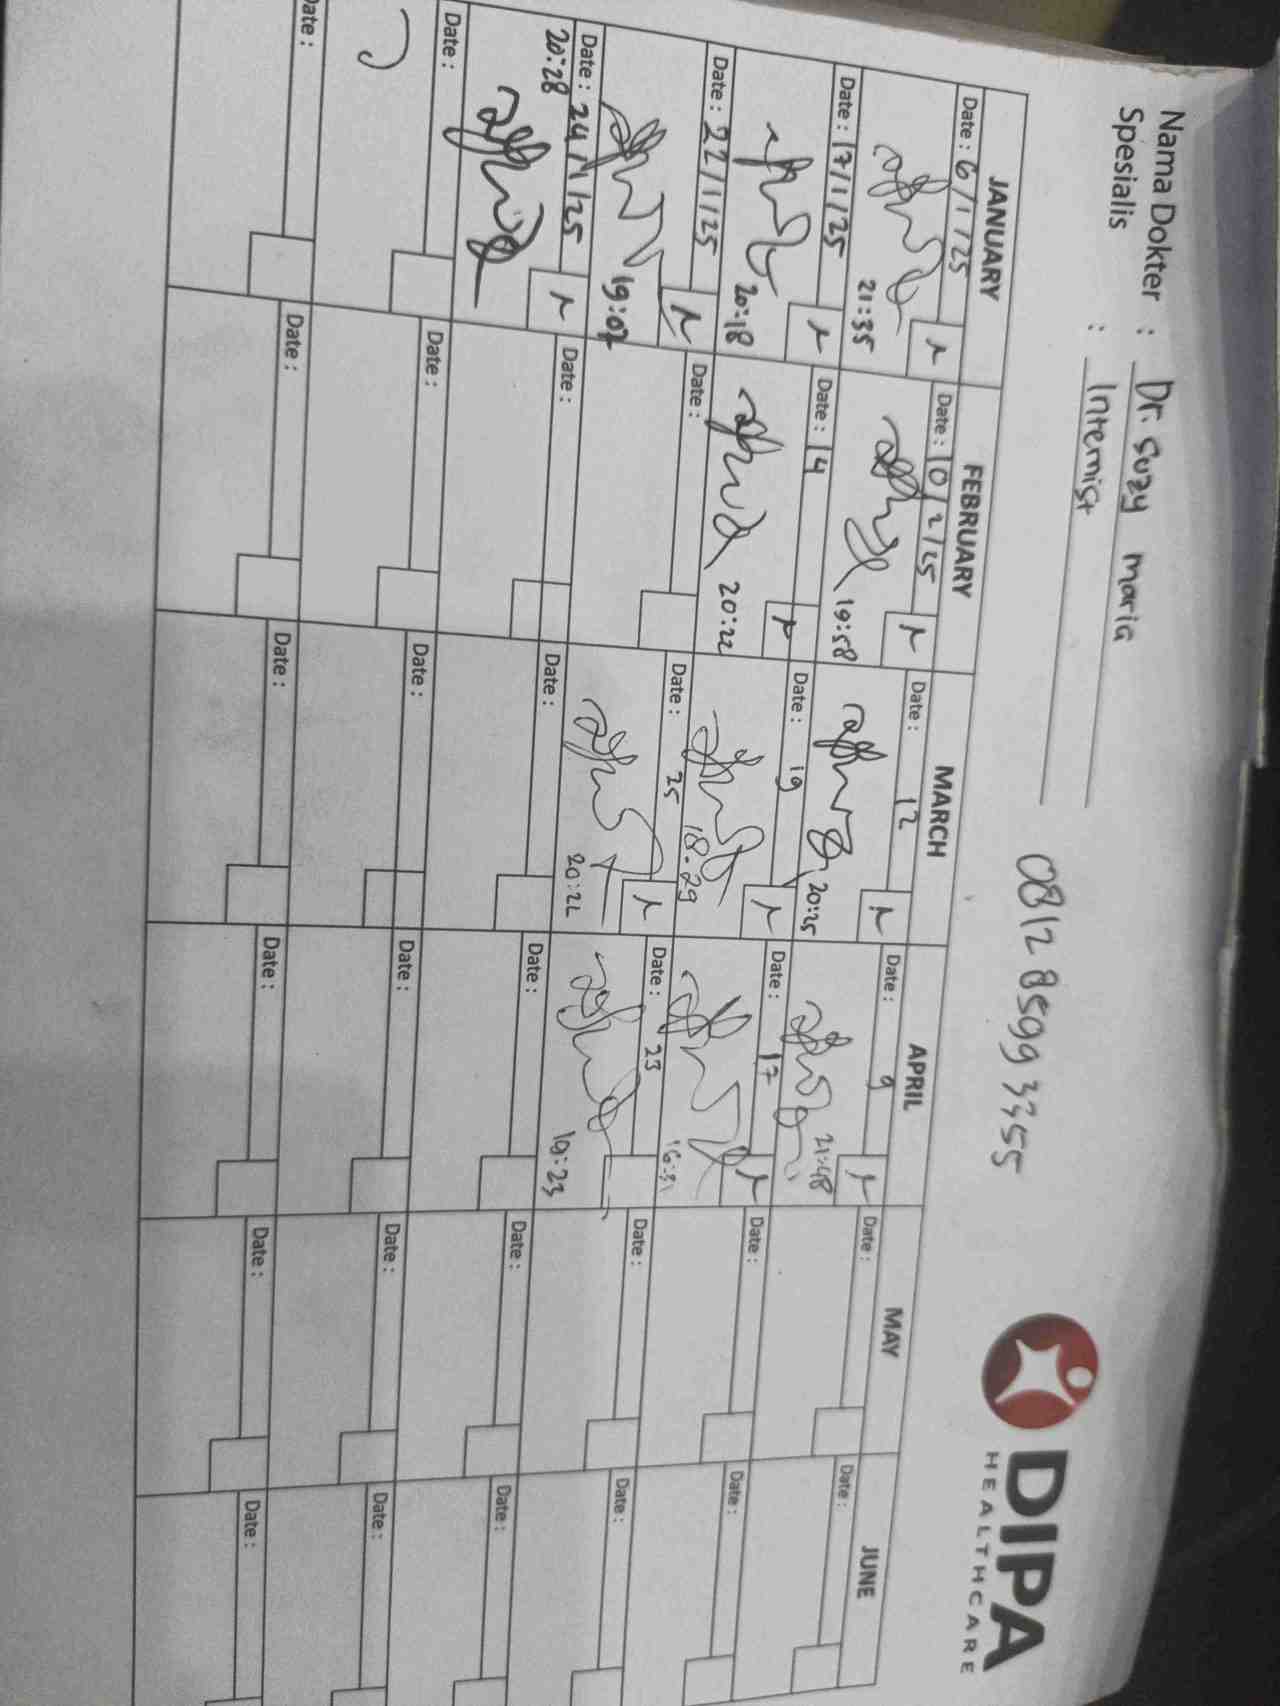 Nama Dokter : Dr. Suzy maria
Spesialis : Internist
0812 8599 3355
DIPA
HEALTHCARE
JANUARY FEBRUARY MARCH APRIL MAY JUNE
Date : 6/1/25 Date : 10/2/25 Date : 12 Date : 9 Date : Date :
21:35 19:58 20:25 21:48
Date : 17/1/25 Date : 14 Date : 19 Date : 17 Date : Date :
20:18 20:22 18.29 16:31
Date : 22/1/25 Date : Date : 25 Date : 23 Date : Date :
19:07 20:22 19:23
Date : 24/1/25 Date : Date : Date : Date : Date :
20:28
Date : Date : Date : Date : Date : Date :
Date : Date : Date : Date : Date : Date :